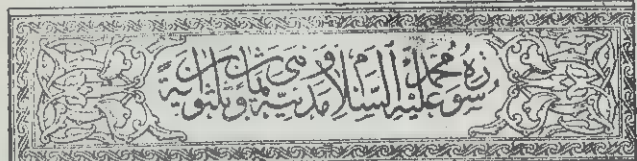 سورة محمد عليه السلام مدنية وهي ثمان وثلثون اية